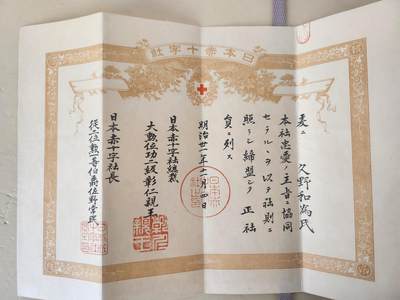 日本赤十字社
爰ニ 久野和為氏
本社忠愛ノ主旨ニ協同
セラルヽヲ以テ社則ニ
照シ締盟シテ正社
員ニ列ス
明治 年十一月四日
日本赤十字社總裁
大勲位功二級彰仁親王
日本赤十字社長
從二位勲一等伯爵佐野常民